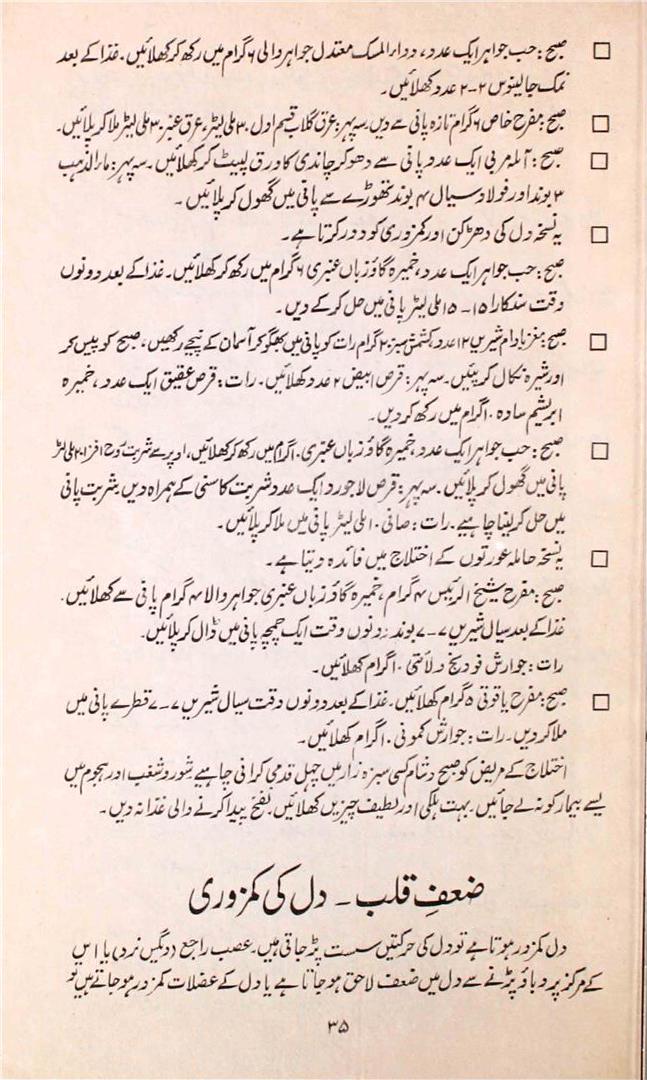 □ صبح: حب جواہر ایک عدد، دواء المسک معتدل جواہر والی ۶ گرام میں رکھ کر کھلائیں۔ غذا کے بعد
نمک جالینوس ۲-۲ عدد کھلائیں۔
□ صبح: مفرح خاص ۶ گرام تازہ پانی سے دیں۔ سہ پہر: عرق گلاب قسم اول ۳۰ ملی لیٹر، عرق عنبر ۳۰ ملی لیٹر ملا کر پلائیں۔
□ صبح: آملہ مربی ایک عدد پانی سے دھو کر چاندی کا ورق لپیٹ کر کھلائیں۔ سہ پہر: ماء الذہب
۳ بوند اور فولاد سیال ۴ بوند تھوڑے سے پانی میں گھول کر پلائیں۔
□ یہ نسخہ دل کی دھڑکن اور کمزوری کو دور کرتا ہے۔
صبح: حب جواہر ایک عدد، خمیرہ گاؤزباں عنبری ۶ گرام میں رکھ کر کھلائیں۔ غذا کے بعد دونوں
وقت سنکارا ۱۵-۱۵ ملی لیٹر پانی میں حل کر کے دیں۔
□ صبح: مغز بادام شیریں ۱۲ عدد، کشمش سبز ۲۰ گرام رات کو پانی میں بھگو کر آسمان کے نیچے رکھیں، صبح کو پیس کر
اور شیرہ نکال کر پئیں۔ سہ پہر: قرص ابیض ۲ عدد کھلائیں۔ رات: قرص عقیق ایک عدد، خمیرہ
ابریشم سادہ ۱۰ گرام میں رکھ کر دیں۔
□ صبح: حب جواہر ایک عدد، خمیرہ گاؤزباں عنبری ۱۰ گرام میں رکھ کر کھلائیں، اوپر سے شربت روح افزا ۲۰ ملی لٹر
پانی میں گھول کر پلائیں۔ سہ پہر: قرص لاجورد ایک عدد شربت کاسنی کے ہمراہ دیں۔ شربت پانی
میں حل کر لینا چاہیے۔ رات: صافی ۱۰ ملی لیٹر پانی میں ملا کر پلائیں۔
□ یہ نسخہ حاملہ عورتوں کے اختلاج میں فائدہ دیتا ہے۔
صبح: مفرح شیخ الرئیس ۴ گرام، خمیرہ گاؤزباں عنبری جواہر والا ۴ گرام پانی سے کھلائیں۔
غذا کے بعد سیال شیریں ۷-۷ بوند دونوں وقت ایک چمچہ پانی میں ڈال کر پلائیں۔
رات: جوارش فودنج ولائتی ۱۰ گرام کھلائیں۔
□ صبح: مفرح یاقوتی ۵ گرام کھلائیں۔ غذا کے بعد دونوں وقت سیال شیریں ۷-۷ قطرے پانی میں
ملا کر دیں۔ رات: جوارش کمونی ۱۰ گرام کھلائیں۔
اختلاج کے مریض کو صبح و شام کسی سبزہ زار میں چہل قدمی کرانی چاہیے شور و شغب اور ہجوم میں
ایسے بیمار کو نہ لے جائیں۔ بہت ہلکی اور لطیف چیزیں کھلائیں۔ نفخ پیدا کرنے والی غذا نہ دیں۔
ضعفِ قلب ۔ دل کی کمزوری
دل کمزور ہوتا ہے تو دل کی حرکتیں سست پڑ جاتی ہیں۔ عصب راجع (ویگس نرو) یا اس
کے مرکز پر دباؤ پڑنے سے دل میں ضعف لاحق ہو جاتا ہے یا دل کے عضلات کمزور ہو جاتے ہیں تو
۳۵